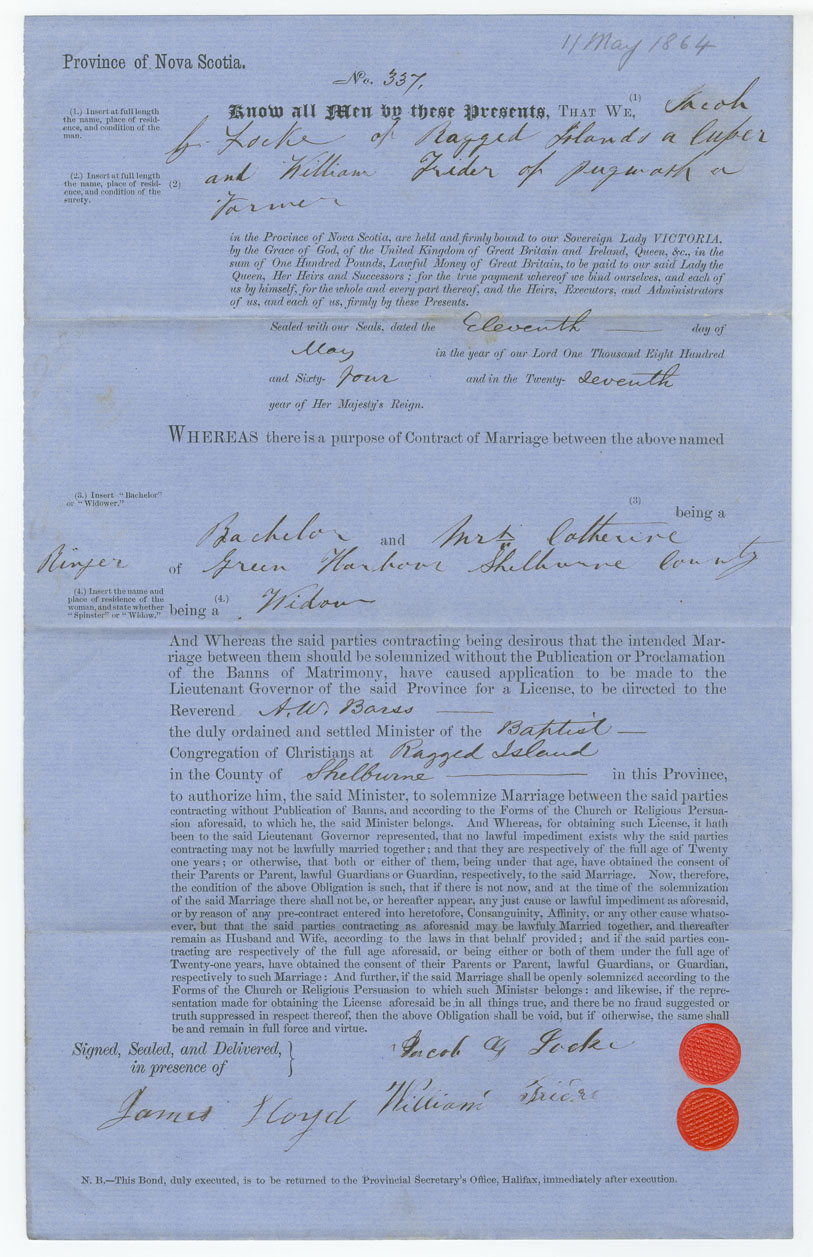 11 May 1864
Province of Nova Scotia.
No. 337.
(1.) Insert at full length
the name, place of resid-
ence, and condition of the
man.
Know all Men by these Presents, THAT WE, (1) Jacob
G. Locke of Ragged Islands a Cuper
(2.) Insert at full length
the name, place of resid-
ence, and condition of the
surety.
(2) and William Frider of pugwash a
Farmer
in the Province of Nova Scotia, are held and firmly bound to our Sovereign Lady VICTORIA,
by the Grace of God, of the United Kingdom of Great Britain and Ireland, Queen, &c., in the
sum of One Hundred Pounds, Lawful Money of Great Britain, to be paid to our said Lady the
Queen, Her Heirs and Successors ; for the true payment whereof we bind ourselves, and each of
us by himself, for the whole and every part thereof, and the Heirs, Executors, and Administrators
of us, and each of us, firmly by these Presents.
Sealed with our Seals, dated the Eleventh day of
May in the year of our Lord One Thousand Eight Hundred
and Sixty- four and in the Twenty- seventh
year of Her Majesty's Reign.
WHEREAS there is a purpose of Contract of Marriage between the above named
(3.) Insert "Bachelor"
or "Widower."
(3)
being a
Bachelor and Mrs Catherine
Ringer of Green Harbour Shelburne County
(4.) Insert the name and
place of residence of the
woman, and state whether
"Spinster" or "Widow."
being a (4.) Widow
And Whereas the said parties contracting being desirous that the intended Mar-
riage between them should be solemnized without the Publication or Proclamation
of the Banns of Matrimony, have caused application to be made to the
Lieutenant Governor of the said Province for a License, to be directed to the
Reverend A. W. Barss
the duly ordained and settled Minister of the Baptist
Congregation of Christians at Ragged Island
in the County of Shelburne in this Province,
to authorize him, the said Minister, to solemnize Marriage between the said parties
contracting without Publication of Banns, and according to the Forms of the Church or Religious Persua-
sion aforesaid, to which he, the said Minister belongs. And Whereas, for obtaining such License, it hath
been to the said Lieutenant Governor represented, that no lawful impediment exists why the said parties
contracting may not be lawfully married together ; and that they are respectively of the full age of Twenty
one years ; or otherwise, that both or either of them, being under that age, have obtained the consent of
their Parents or Parent, lawful Guardians or Guardian, respectively, to the said Marriage. Now, therefore,
the condition of the above Obligation is such, that if there is not now, and at the time of the solemnization
of the said Marriage there shall not be, or hereafter appear, any just cause or lawful impediment as aforesaid,
or by reason of any pre-contract entered into heretofore, Consanguinity, Affinity, or any other cause whatso-
ever, but that the said parties contracting as aforesaid may be lawfuly Married together, and thereafter
remain as Husband and Wife, according to the laws in that behalf provided ; and if the said parties con-
tracting are respectively of the full age aforesaid, or being either or both of them under the full age of
Twenty-one years, have obtained the consent of their Parents or Parent, lawful Guardians, or Guardian,
respectively to such Marriage : And further, if the said Marriage shall be openly solemnized according to the
Forms of the Church or Religious Persuasion to which such Ministsr belongs : and likewise, if the repre-
sentation made for obtaining the License aforesaid be in all things true, and there be no fraud suggested or
truth suppressed in respect thereof, then the above Obligation shall be void, but if otherwise, the same shall
be and remain in full force and virtue.
Signed, Sealed, and Delivered,
in presence of
Jacob G Locke
James Floyd William Frider
N. B.—This Bond, duly executed, is to be returned to the Provincial Secretary's Office, Halifax, immediately after execution.